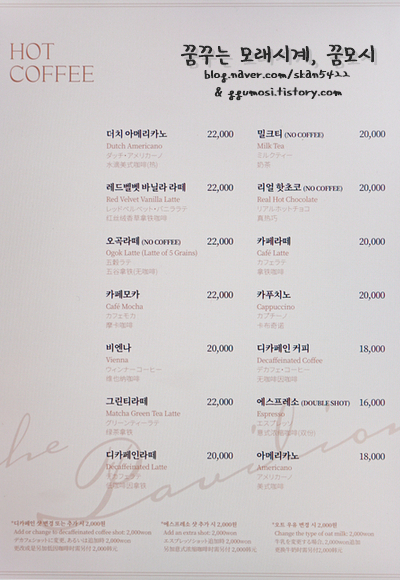 HOT
COFFEE
꿈꾸는 모래시계, 꿈모시
blog.naver.com/skan5422
& ggumosi.tistory.com
더치 아메리카노 22,000
Dutch Americano
ダッチ・アメリカーノ
밀크티 (NO COFFEE) 20,000
Milk Tea
ミルクティー
奶茶
레드벨벳 바닐라 라떼 22,000
Red Velvet Vanilla Latte
レッドベルベット・バニララテ
红丝绒香草拿铁咖啡
리얼 핫초코 (NO COFFEE) 20,000
Real Hot Chocolate
リアルホットチョコ
오곡라떼 (NO COFFEE) 22,000
Ogok Latte (Latte of 5 Grains)
五穀ラテ
五谷拿铁(无咖啡)
카페라떼 20,000
Café Latte
カフェラテ
拿铁咖啡
카페모카 22,000
Café Mocha
カフェモカ
摩卡咖啡
카푸치노 20,000
Cappuccino
カプチーノ
卡布奇诺
비엔나 20,000
Vienna
ウィンナーコーヒー
维也纳咖啡
디카페인 커피 18,000
Decaffeinated Coffee
デカフェ・コーヒー
无咖啡因咖啡
그린티라떼 22,000
Matcha Green Tea Latte
グリーンティーラテ
绿茶拿铁
에스프레소 (DOUBLE SHOT) 16,000
Espresso
エスプレッソ
意式浓缩咖啡(双份)
디카페인라떼 20,000
Decaffeinated Latte
デカフェラテ
아메리카노 18,000
Americano
アメリカーノ
美式咖啡
The Pavilion
Add or change to decaffeinated coffee shot: 2,000won
*에스프레소 샷 추가 시 2,000원
Add an extra shot: 2,000won
*오트 우유 변경 시 2,000원
Change the type of oat milk: 2,000won